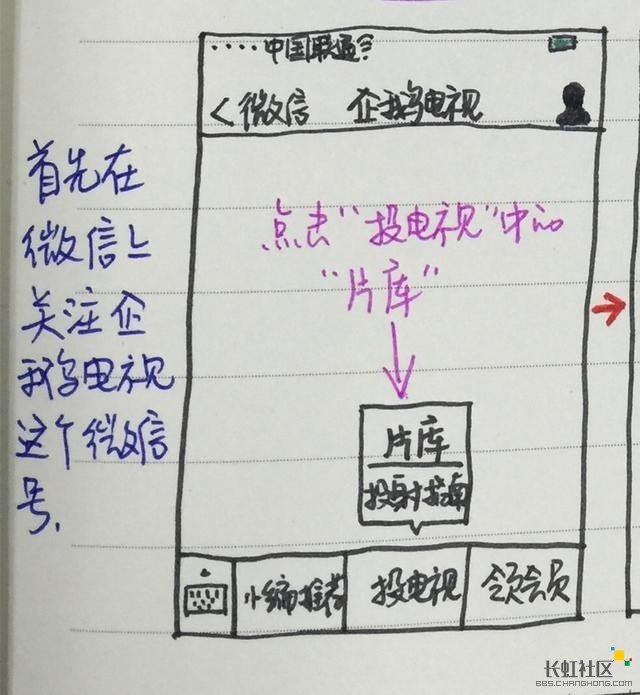 ····中国联通
<微信 企鹅电视
首先在
微信上
关注企
鹅电视
这个微信
号.
点击"投电视"中的
"片库"
片库
投射指南
小编推荐 投电视 领会员
长虹社区
BBS.CHANGHONG.COM